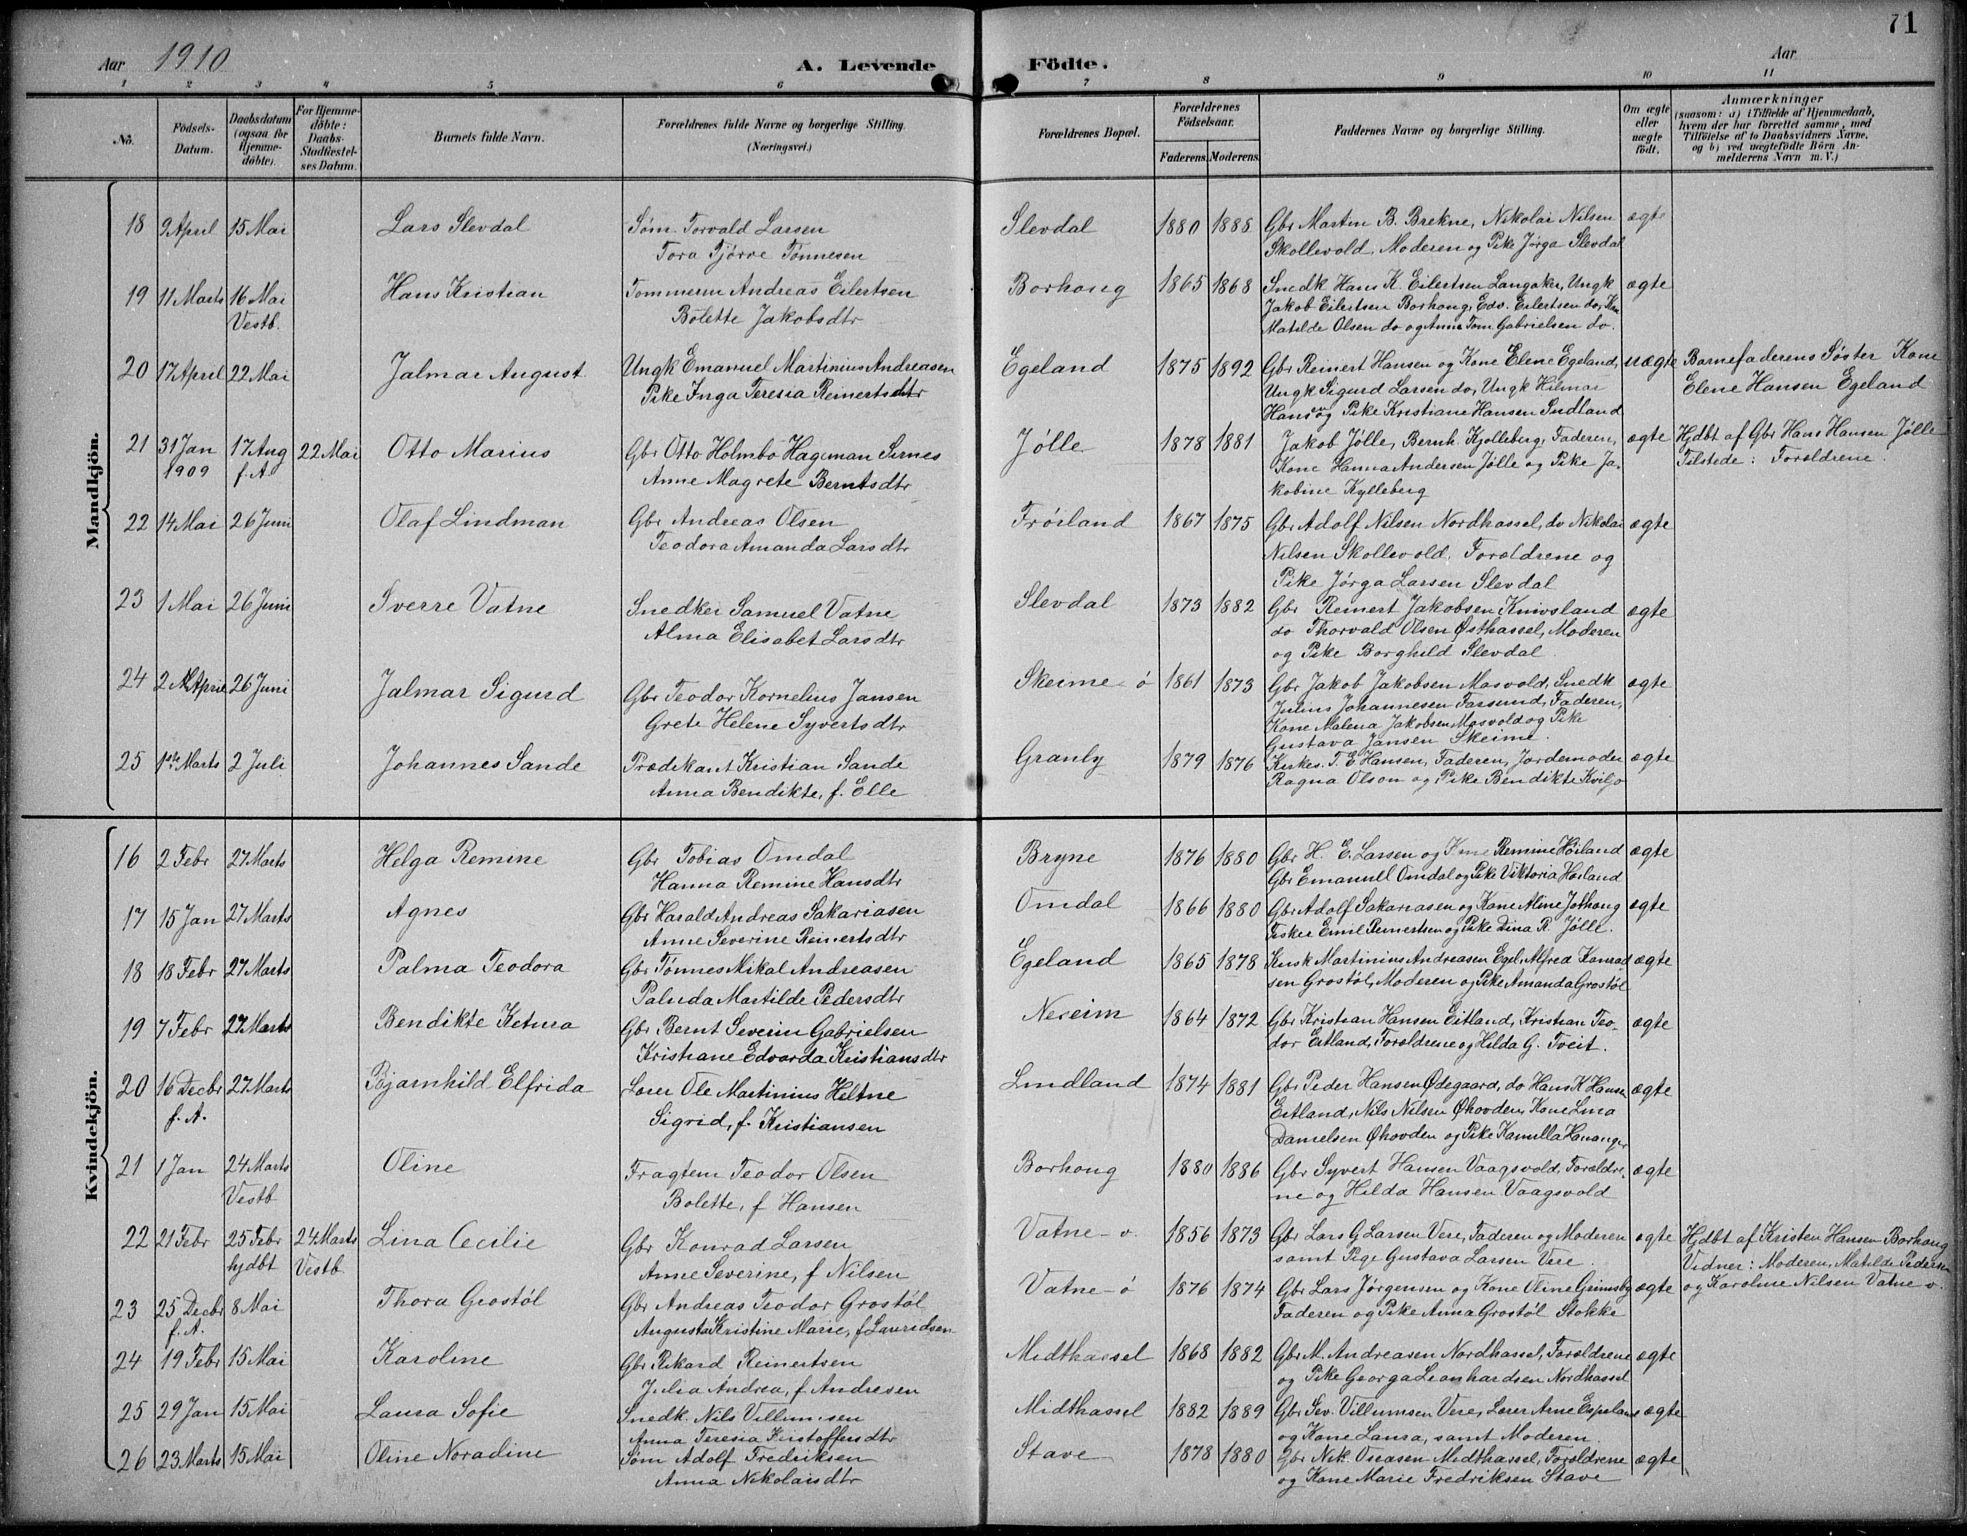 71
Aar 1910
A. Levende Födte.
Aar
1 2 3 4 5 6 7 8 9 10 11
No.
Födsels-Datum.
Daabsdatum (ogsaa for Hjemmedöbte).
For Hjemmedöbte: Daabs-Stadfæstelses Datum.
Barnets fulde Navn.
Forældrenes fulde Navne og borgerlige Stilling. (Næringsvei.)
Forældrenes Bopæl.
Forældrenes Födselsaar.
Faderens. Moderens.
Faddernes Navne og borgerlige Stilling.
Om ægte eller uægte födt.
Anmærkninger
(saasom: a) i Tilfælde af Hjemmedaab, hvem der har forrettet samme, med Tilföielse af to Daabsvidners Navne, og b) ved uægtefödte Börn Anmelderens Navn m. V.)
Mandkjön.
18 9 April 15 Mai Lars Slevdal Søm. Torvald Larsen Slevdal 1880 1888 Gbr Martin B. Brekne, Nikolai Nilsen ægte
Tora Tjörve Tönnesen Skollevold, Moderen og Pike Jørga Slevdal
19 11 Marts 16 Mai Hans Kristian Tømmerm Andreas Eilertsen Borhoug 1865 1868 Snedk Hans K. Eilertsen Langaker, Ungk ægte
Vestb. Bolette Jakobsdtr Jakob Eilertsen Borhoug, Edv. Eilertsen do,
Matilde Olsen do og Anne Tom. Gabrielsen do.
20 17 April 22 Mai Jalmar August Ungk Emanuel Martinius Andreasen Egeland 1875 1892 Gbr Reinert Hansen og Kone Elene Egeland, uægte Barnefaderens Søster Kone
Pike Inga Teresia Reinertsdtr Ungk Sigurd Larsen do, Ungk Hilmar Elene Hansen Egeland
Hansen og Pike Kristiane Hansen Sudland
21 31 Jan 17 Aug 22 Mai Otto Marius Gbr Otto Holmbo Hageman Sirnes Jølle 1878 1881 Jakob Jølle, Bernh. Kjolleberg, Faderen, ægte Hjdbt af Gbr Hans Hansen Jølle
1909 f.A. Anne Magrete Berntsdtr Kone Hanna Andersen Jølle og Pike Ja- Tilstede: Forældrene.
kobine Kylleberg
22 14 Mai 26 Juni Olaf Lindman Gbr Andreas Olsen Frøisland 1867 1875 Gbr Adolf Nilsen Nordhassel, do Nikolai ægte
Teodora Amanda Larsdtr Nilsen Skollevold. Forældrene og
Pike Jørga Larsen Slevdal
23 1 Mai 26 Juni Sverre Vatne Snedker Samuel Vatne Slevdal 1873 1882 Gbr Reinert Jakobsen Knivsland ægte
Alma Elisabet Larsdtr do Thorvald Olsen Østhassel, Moderen
og Pike Borghild Slevdal
24 2 April 26 Juni Jalmar Sigurd Gbr Teodor Kornelius Jansen Skeime ö 1861 1873 Gbr Jakob Jakobsen Mosvold, Snedk ægte
Grete Helene Syvertsdtr Julius Johannesen Farsund, Faderen,
Kone Malena Jakobsen Mosvold og Pike
Gustava Jansen Skeime.
25 1ste Marts 2 Juli Johannes Sande Prædikant Kristian Sande Granby 1879 1876 Kirkes. T. E Hansen, Faderen, Jordemoder ægte
Anna Bendikte, f. Elle Ragna Olson og Pike Bendikte Kviljo
Kvindekjön.
16 2 Febr 27 Marts Helga Remine Gbr Tobias Omdal Bryne 1876 1880 Gbr H. E. Larsen og Kone Remine Høiland ægte
Hanna Remine Hansdtr Gbr Emanuell Omdal og Pike Viktoria Høiland
17 15 Jan 27 Marts Agnes Gbr Harald Andreas Sakariasen Omdal 1866 1880 Gbr Adolf Sakariasen og Kone Aline Jøthong ægte
Anne Severine Reinertsdtr Fisker Emil Reinertsen og Pike Dina R. Jølle.
18 18 Febr 27 Marts Palma Teodora Gbr Tønnes Mikal Andreasen Egeland 1865 1878 Kusk Martinius Andreasen Egel, Alfred Konrad- ægte
Paluda Martilde Pedersdtr sen Grostøl, Moderen og Pike Amanda Grostøl
19 7 Febr 27 Marts Bendikte Ketura Gbr Bernt Severin Gabrielsen Neseim 1864 1872 Gbr Kristian Hansen Eitland, Kristian Teo- ægte
Kristiane Edvarda Kristiansdtr dor Eitland, Forældrene og Hilda G. Tveit.
20 16 Decbr 27 Marts Bjarnhild Elfrida Lærer Ole Martinius Heltne Lindland 1874 1881 Gbr Peder Hansen Ødegaard, do Hans K Hansen ægte
f. A. Sigrid, f. Kristiansen Eitland, Nils Nilsen Øhovden, Kone Lina
Danielsen Øhovden og Pike Kamilla Hananger
21 1 Jan 24 Marts Oline Fragtem Teodor Olsen Borhoug 1880 1886 Gbr Syvert Hansen Vaagsvold, Forældre- ægte
Vestb Bolette, f Hansen ne og Hilda Hansen Vaagsvold
22 21 Febr 25 Febr 24 Marts Lina Cecilie Gbr Konrad Larsen Vatne-v. 1856 1873 Gbr Lars G Larsen Vere, Faderen og Moderen ægte Hjdbt af Kristen Hansen Borhaug
hjdbt Vestb Anne Severine, f Nilsen samt Pige Gustava Larsen Vere. Vidner: Moderen, Matilde Pedersen
og Karoline Nilsen Vatne v.
23 25 Decbr 8 Mai Thora Grostøl Gbr Andreas Teodor Grostøl Vatne-ö 1876 1874 Gbr Lars Jørgensen og Kone Oline Grimsby ægte
f. A. Augusta Kristine Marie, f Lauridsen Faderen og Pike Anna Grostøl Stokke
24 19 Febr 15 Mai Karoline Gbr Rikard Reinertsen Midthassel 1868 1882 Gbr M. Andreasen Nordhassel, Forældrene ægte
Julia Andrea, f. Andresen og Pike Georga Leonhardsen Nordhassel
25 29 Jan 15 Mai Laura Sofie Snedk. Nils Villumsen Midthassel 1882 1889 Gbr Sev. Villumsen Vere, Lærer Arne Espeland ægte
Anna Teresia Kristoffersdtr og Kone Laura, samt Moderen.
26 23 Marts 15 Mai Oline Noradine Søm Adolf Fredriksen Stave 1878 1880 Gbr Nik. Oseasen Midthassel, Forældrene ægte
Anna Nikolaisdtr og Kone Marie Fredriksen Stave